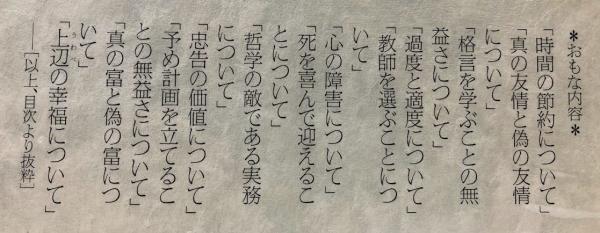 ＊おもな内容＊
「時間の節約について」
「真の友情と偽の友情
について」
「格言を学ぶことの無
益さについて」
「過度と適度について」
「教師を選ぶことにつ
いて」
「心の障害について」
「死を喜んで迎えるこ
とについて」
「哲学の敵である実務
について」
「忠告の価値について」
「予め計画を立てるこ
との無益さについて」
「真の富と偽の富につ
いて」
「上辺（うわべ）の幸福について」
──［以上、目次より抜粋］